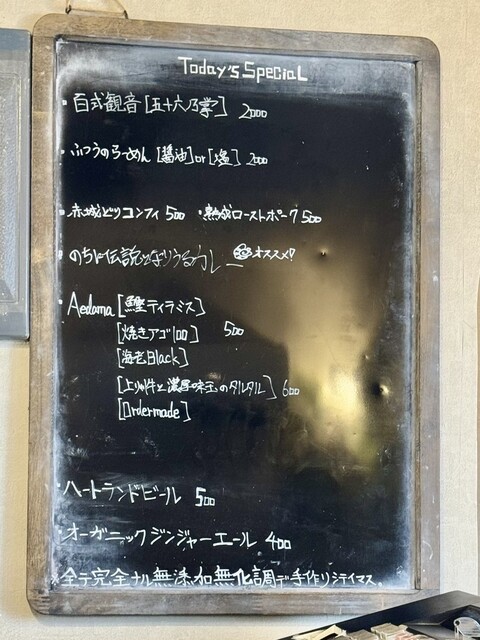 Today's SpeciaL
・百式観音[五十六乃掌] 2000
・ふつうのらーめん [醤油]or[塩] 2000
・赤城どりコンフィ 500 ・熟成ローストポーク 500
・のちに伝説となりうるカレー オススメ!!
・Aedama[鰹ティラミス]
[焼きアゴ100] 500
[海老Black]
[上州牛と濃厚味玉のタルタル] 600
[Ordermade]
・ハートランドビール 500
・オーガニックジンジャーエール 400
※全テ完全ナル無添加無化調デ手作リシテイマス。